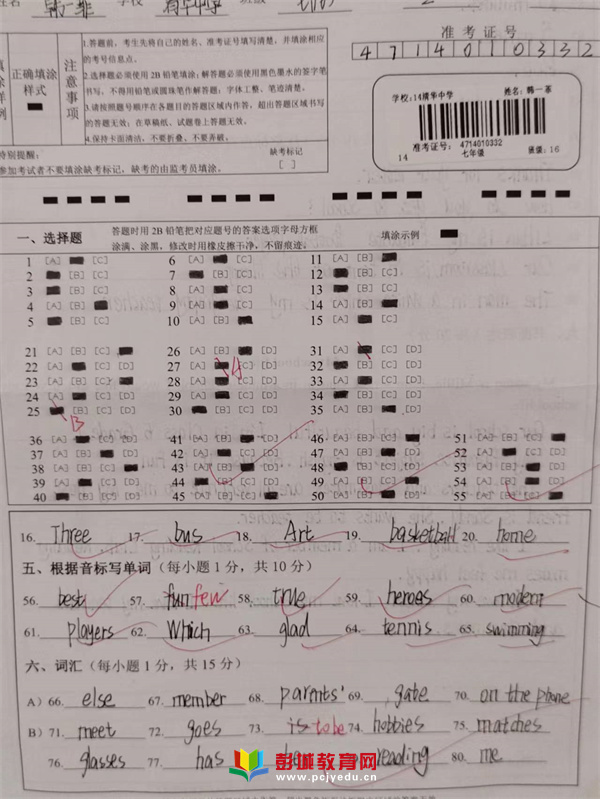 准考证号
4714010332
填涂样例
正确填涂样式
注意事项
1.答题前，考生先将自己的姓名、准考证号填写清楚，并填涂相应的考号信息点。
2.选择题必须使用2B铅笔填涂；解答题必须使用黑色墨水的签字笔书写，不得用铅笔或圆珠笔作解答题；字体工整、笔迹清楚。
3.请按照题号顺序在各题目的答题区域内作答，超出答题区域书写的答题无效；在草稿纸、试题卷上答题无效。
4.保持卡面清洁，不要折叠、不要弄破。
学校:14精华中学
姓名:韩一菲
准考证号：4714010332
七年级
14
班级：16
特别提醒：
参加考试者不要填涂缺考标记，缺考的由监考员填涂。
缺考标记
[ ]
一、选择题
答题时用2B铅笔把对应题号的答案选项字母方框涂满、涂黑，修改时用橡皮擦干净，不留痕迹。
填涂示例
1 [A] [C] 6 [A] [C] 11 [A] [B]
2 [B] [C] 7 [B] [C] 12 [B] [C]
3 [B] [C] 8 [A] [C] 13 [A] [B]
4 [A] [C] 9 [A] [C] 14 [B] [C]
5 [B] [C] 10 [A] [B] 15 [A] [C]
21 [A] [B] [C] 26 [A] [C] [D] 31 [A] [C] [D]
22 [A] [C] [D] 27 [A] [C] [D] A 32 [B] [C] [D]
23 [A] [B] [D] 28 [A] [C] [D] 33 [B] [C] [D]
24 [A] [C] [D] 29 [A] [C] [D] 34 [A] [C] [D]
25 [B] [C] [D] B 30 [B] [C] [D] 35 [A] [B] [D]
36 [A] [D] 41 [A] [C] [D] 46 [A] [C] [D] 51
37 47 52
38 43 48 53
39 44 49 54
40 45 50 55
16. Three 17. bus 18. Art 19. basketball 20. home
五、根据音标写单词（每小题1分，共10分）
56. best 57. fun few 58. true 59. heroes 60. modern
61. players 62. Which 63. glad 64. tennis 65. swimming
六、词汇（每小题1分，共15分）
A）66. else 67. member 68. parents' 69. gate 70. on the phone
B）71. meet 72. goes 73. is to be 74. hobbies 75. matches
76. glasses 77. has reading 80. me
彭城教育网
www.pcjyedu.cn